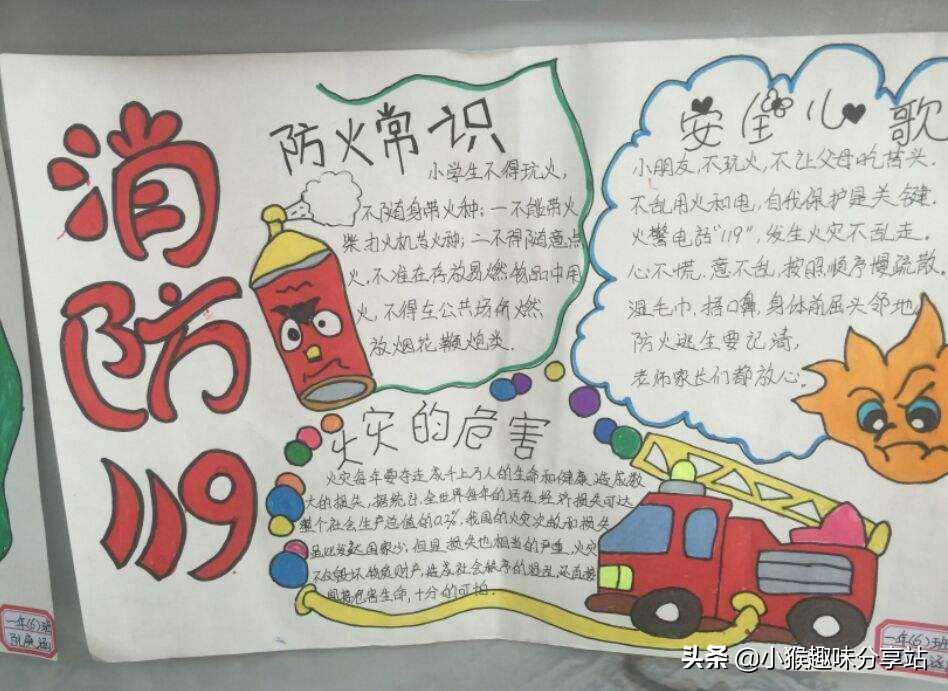 消
防
119
防火常识
小学生不得玩火,
不随身带火种:一不能带火
柴打火机等火种;二不得随意点
火,不准在存放易燃物品中用
火,不得在公共场所燃
放烟花鞭炮类.
安全儿歌
小朋友,不玩火,不让父母吃苦头.
不乱用火和电,自我保护是关键.
火警电话"119",发生火灾不乱走.
心不慌.意不乱,按照顺序慢疏散.
湿毛巾,捂口鼻,身体前屈头邻地
防火逃生要记清,
老师家长们都放心.
火灾的危害
火灾每年要夺走成千上万人的生命和健康,造成数
大的损失,据统计,全世界每年的 经济损失可达
整个社会生产总值的0.2%,我国的火灾次数和损失
虽比发达国家少,但显损失也相当的严重,火灾
不仅毁坏物质财产,造成社会秩序的混乱,还直接
危害生命,十分的可怕.
一年(6)班
一年(6)班
头条 @小猴趣味分享站